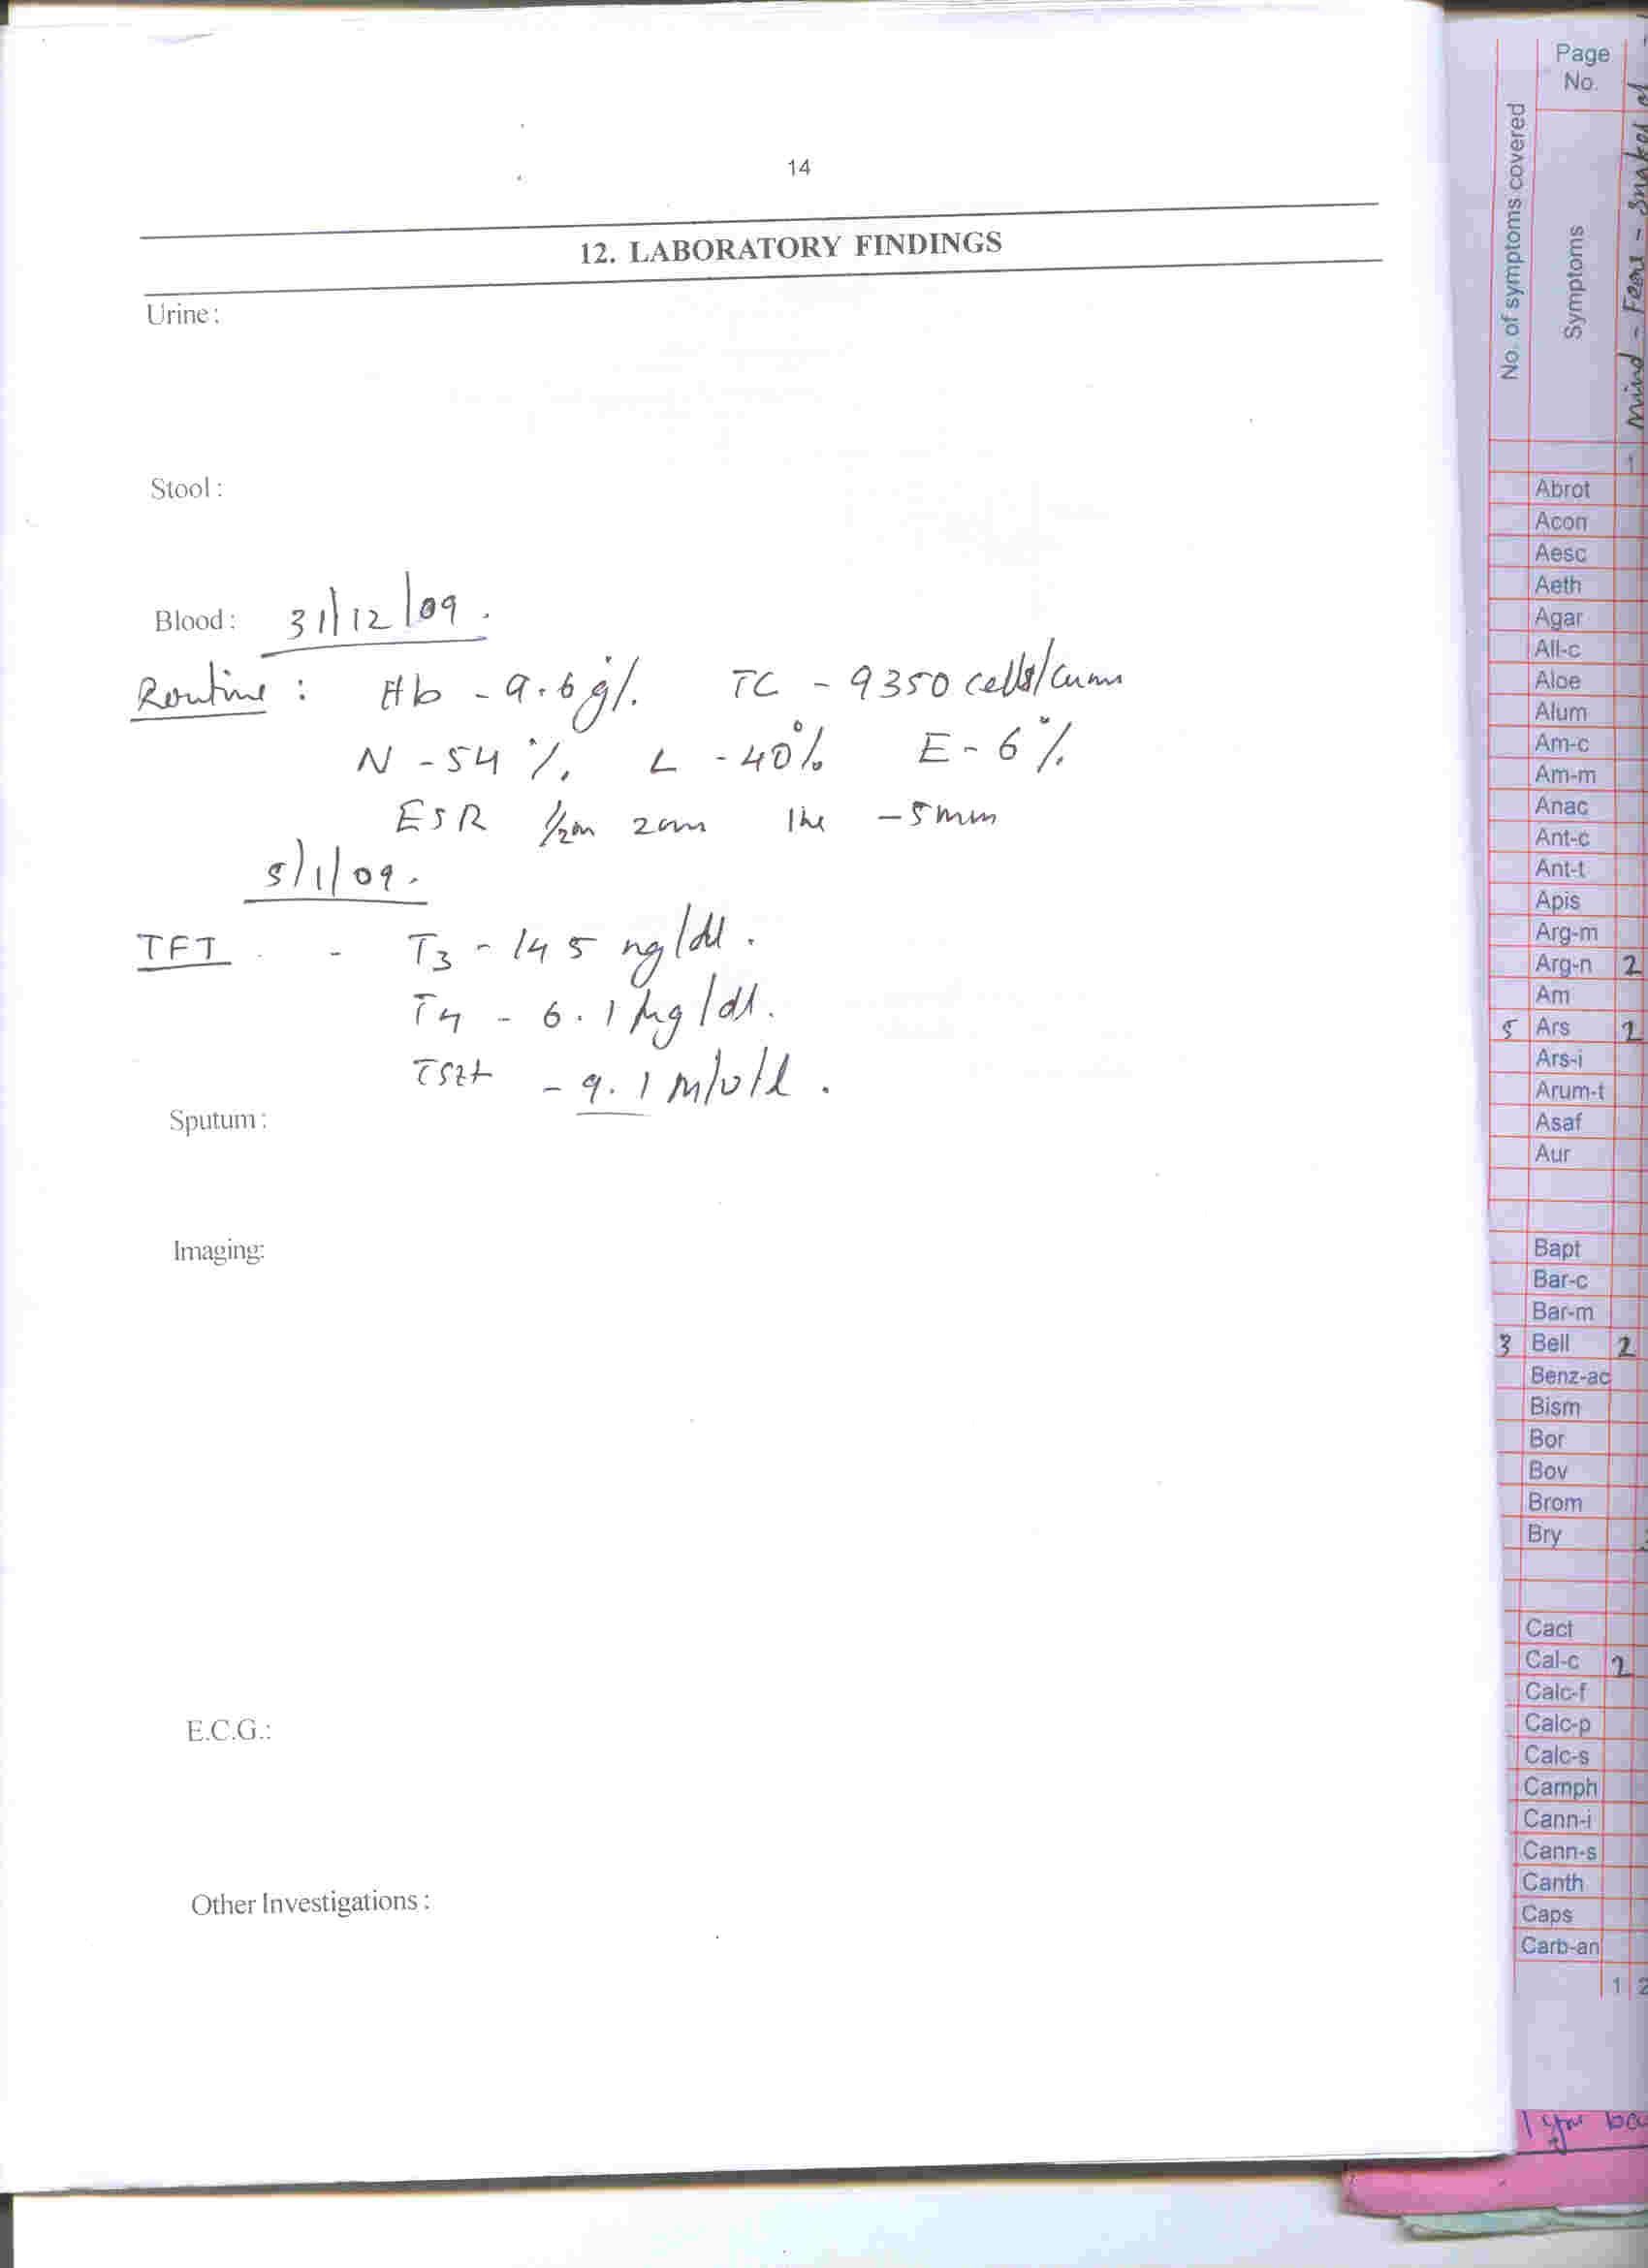 14
12. LABORATORY FINDINGS
Urine :
Stool :
Blood : 31/12/09.
Routine : Hb - 9.6g%. TC - 9350 cells/cumm
N - 54 %. L - 40% E - 6%.
ESR 1/2m 2mm 1hr - 5mm
5/1/09.
TFT - T3 - 145 ng/dl.
T4 - 6.1 μg/dl.
TSH - 9.1 mIU/l.
Sputum :
Imaging:
E.C.G.:
Other Investigations :
Page
No.
No. of symptoms covered
Symptoms
Mind - Fear - snakes of
1
Abrot
Acon
Aesc
Aeth
Agar
All-c
Aloe
Alum
Am-c
Am-m
Anac
Ant-c
Ant-t
Apis
Arg-m
Arg-n 2
Arn
5 Ars 2
Ars-i
Arum-t
Asaf
Aur
Bapt
Bar-c
Bar-m
3 Bell 2
Benz-ac
Bism
Bor
Bov
Brom
Bry
Cact
Cal-c 2
Calc-f
Calc-p
Calc-s
Camph
Cann-i
Cann-s
Canth
Caps
Carb-an
1 2